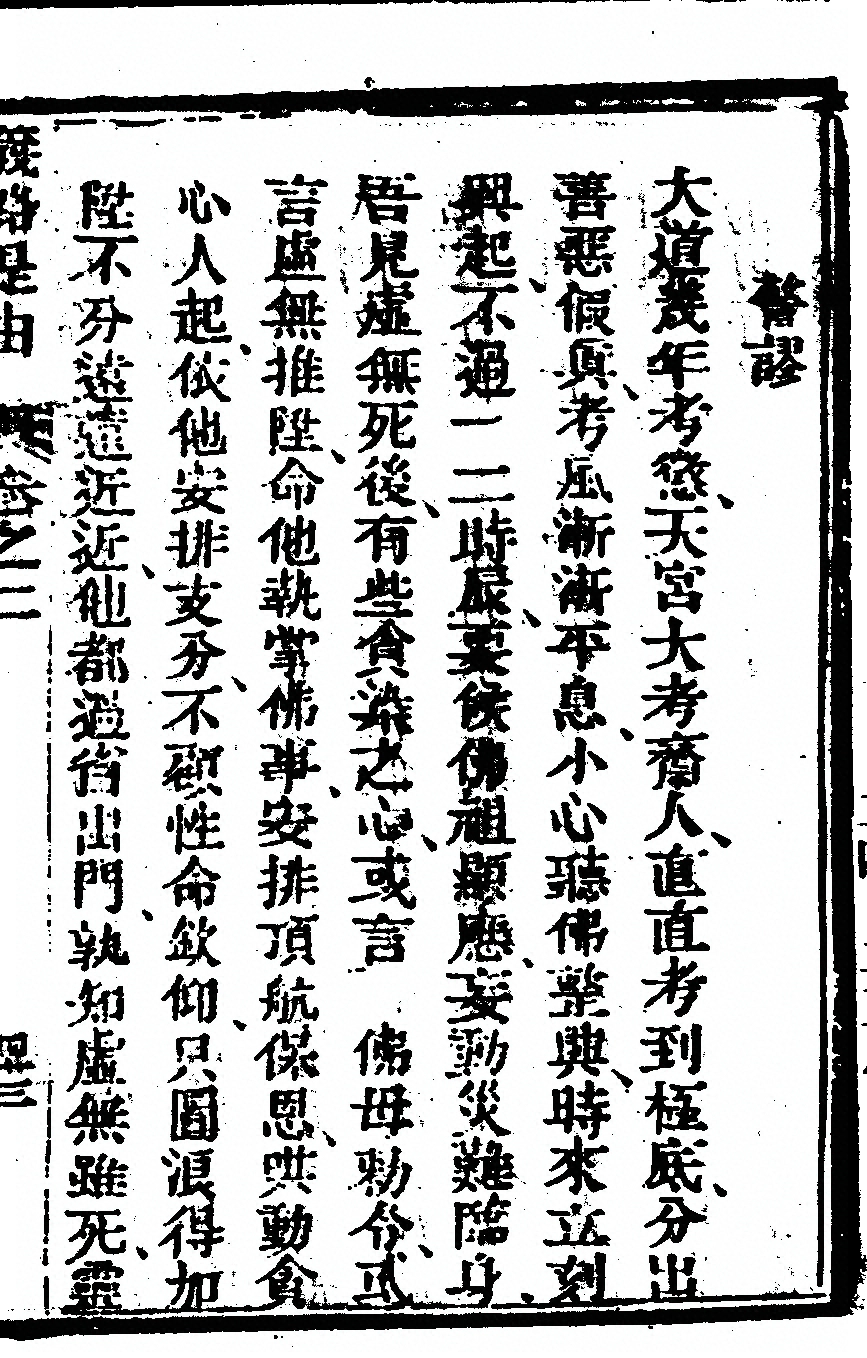 醫謬
大道幾年考懲、天宮大考齋人、直直考到極底、分出
善惡假眞、考風漸漸平息、小心聽佛整興、時來立刻
興起、不過一二時辰、要候佛祖顯應、妄動災難臨身、
吾見虛無死後、有些貪染之心、或言　佛母勅令、或
言虛無推陞、命他執掌佛事、安排頂航保恩、哄動貪
心人起、依他安排支分、不顧性命欽仰、只圖浪得加
陞、不分遠遠近近、他都過省出門、孰知虛無雖死、靈
路是由　卷之二　四三